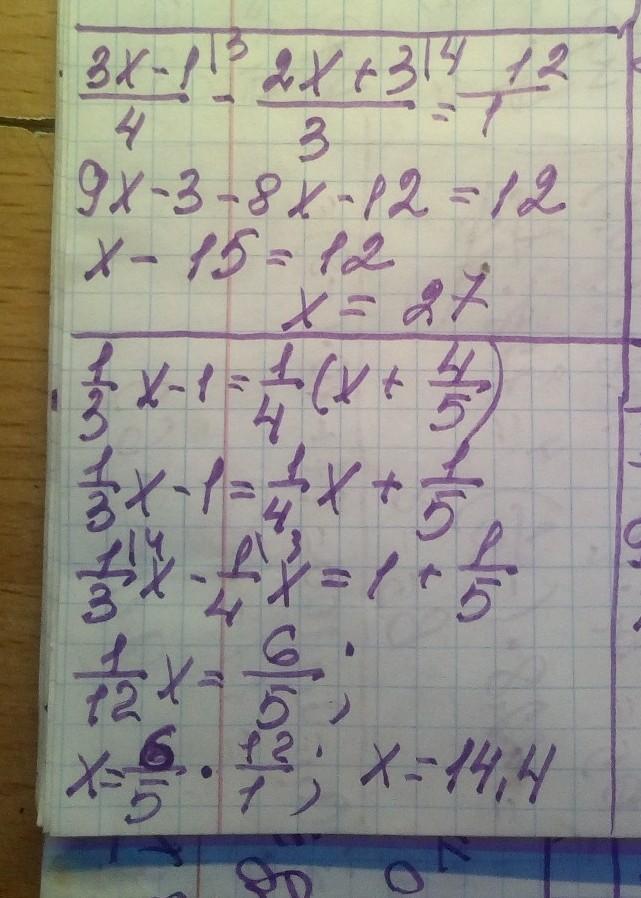 (3x-1)/4 |3 - (2x+3)/3 |4 = 12/1
9x-3-8x-12=12
x-15=12
x=27
1/3 x-1=1/4(x+4/5)
1/3 x-1=1/4 x+1/5
1/3 |4 x-1/4 |3 x=1+1/5
1/12 x=6/5;
x=6/5·12/1; x=14,4